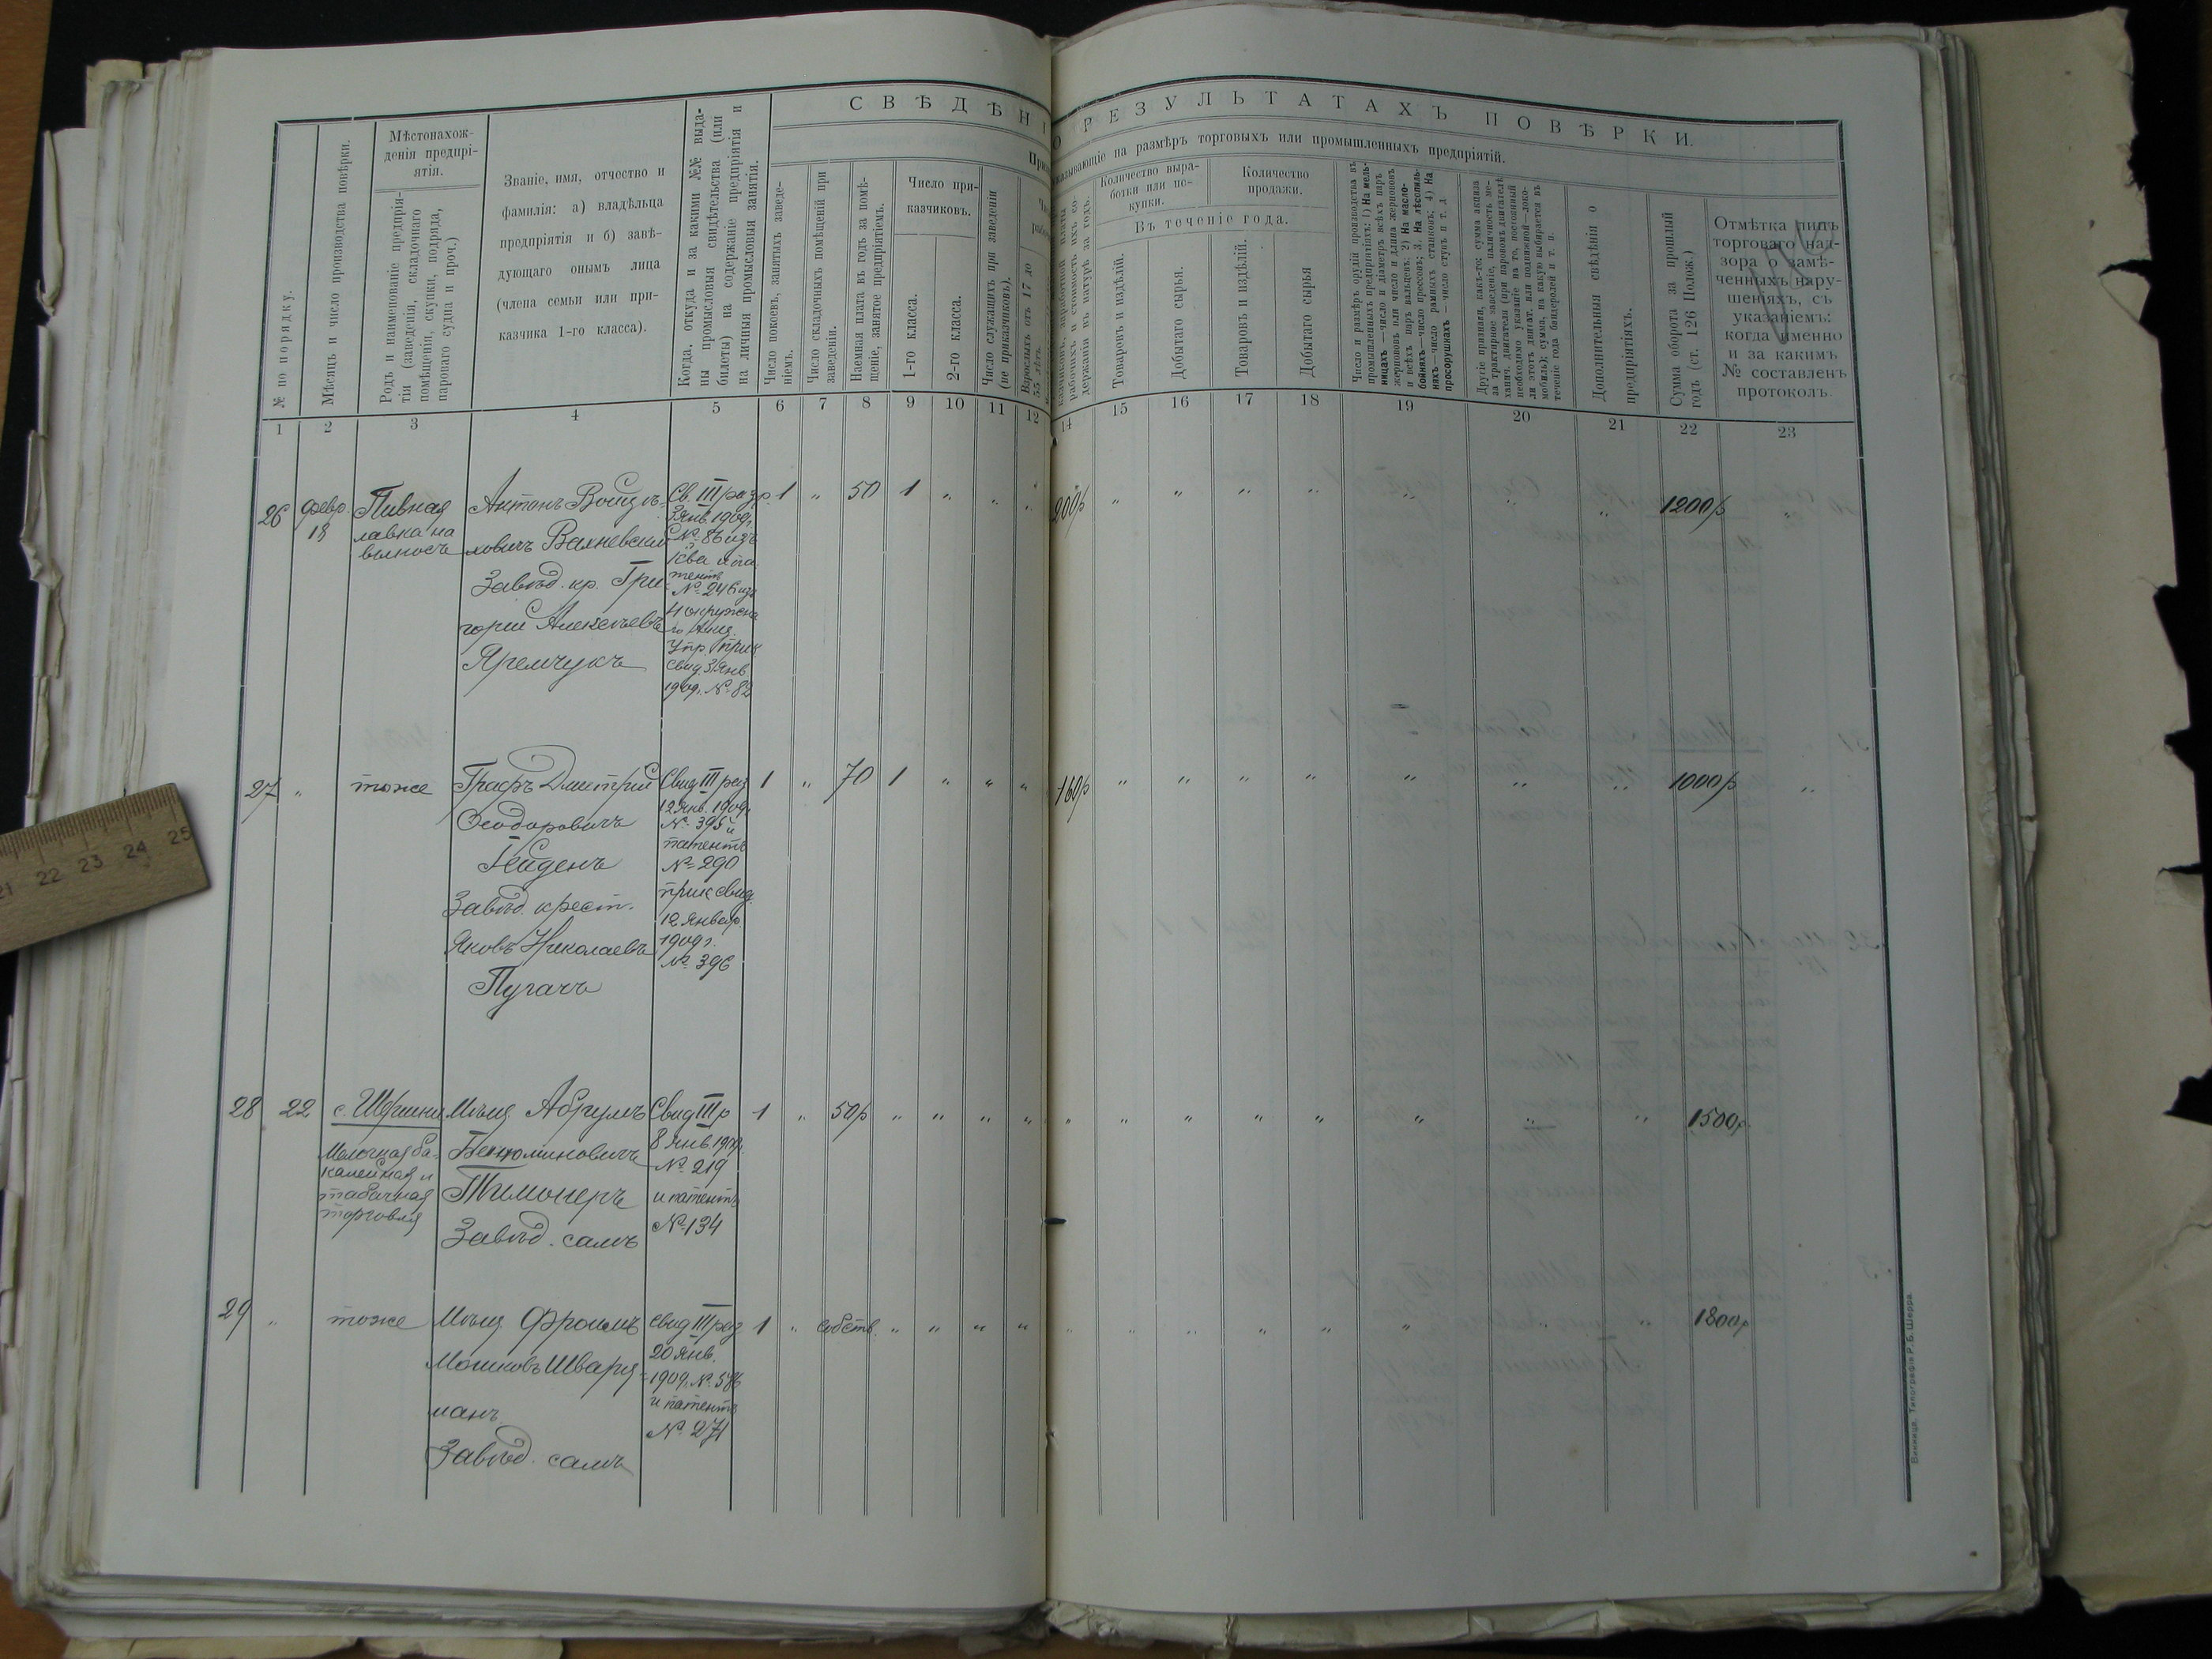 СВѢДѢНІ
О РЕЗУЛЬТАТАХЪ ПОВѢРКИ.
указывающіе на размѣръ торговыхъ или промышленныхъ предпріятій.
№ по порядку.
Мѣсяцъ и число производства повѣрки.
Мѣстонахож-
денія предпрі-
ятія.
Родъ и наименованіе предпрія-
тія (заведенія, складочнаго
помѣщенія, скупки, подряда,
пароваго судна и проч.)
Званіе, имя, отчество и
фамилія: а) владѣльца
предпріятія и б) завѣ-
дующаго онымъ лица
(члена семьи или при-
казчика 1-го класса).
Когда, откуда и за какими №№ выда-
ны промысловыя свидѣтельства (или
билеты) на содержаніе предпріятія и
на личныя промысловыя занятія.
Число покоевъ, занятыхъ заведе-
ніемъ.
Число складочныхъ помѣщеній при
заведеніи.
Наемная плата въ годъ за помѣ-
щеніе, занятое предпріятіемъ.
Число при-
казчиковъ.
1-го класса.
2-го класса.
Число служащихъ при заведеніи
(не приказчиковъ).
Взрослыхъ отъ 17 до
55 лѣтъ.
рабочихъ и стоимость ихъ со-
держанія въ натурѣ за годъ.
Количество выра-
ботки или по-
купки.
Количество
продажи.
Въ теченіе года.
Товаровъ и издѣлій.
Добытаго сырья.
Товаровъ и издѣлій.
Добытаго сырья
Число и размѣръ орудій производства въ
промышленныхъ предпріятіяхъ: 1) На мель-
ницахъ—число и діаметръ всѣхъ паръ
жернововъ или число и длина жернововъ
и всѣхъ паръ вальцевъ; 2) На масло-
бойняхъ—число прессовъ; 3. На лѣсопиль-
няхъ—число рамныхъ станковъ; 4) На
просорушкахъ—число ступъ и т. д
Другіе признаки, какъ-то: сумма акциза
за трактирное заведеніе, наличность ме-
ханич. двигателя (при паровомъ двигателѣ
необходимо указаніе на то, постоянный
ли этотъ двигат. или подвижной—локо-
мобиль); сумма, на какую выбирается въ
теченіе года бандеролей и т. п.
Дополнительныя свѣдѣнія о
предпріятіяхъ.
Сумма оборота за прошлый
годъ (ст. 126 Полож.)
Отмѣтка лицъ
торговаго над-
зора о замѣ-
ченныхъ нару-
шеніяхъ, съ
указаніемъ:
когда именно
и за какимъ
№ составленъ
протоколъ.
1 2 3 4 5 6 7 8 9 10 11 12 14 15 16 17 18 19 20 21 22 23
26 Февр. Пивная Антонъ Войцѣ- Св. III разр 1 „ 50 1 „ „ „ 200р „ „ „ „ „ „ „ 1200р „
18 лавка на ховичъ 3 Янв 1909г.
выносъ № 86 изъ
Завѣд. кр. Гри-
№ 246 изъ
горій Алексѣевъ
Яремчукъ Упр. прик
свид. 3 Янв
1909г. № 82
27 „ тоже Графъ Дмитрій Свид III раз 1 „ 70 1 „ „ „ 160р „ „ „ „ „ „ „ 1000р „
12 Янв. 1909г.
Ѳеодоровичъ № 395 и
патентъ
Гейденъ № 290
Завѣд. крест. прик свид.
12 Январ.
Яковъ Николаевъ 1909г.
№ 396
Пугачъ
28 22 Мѣщ. Абрумъ Свид III р 1 „ 50р „ „ „ „ „ „ „ „ „ „ „ „ 1500р.
Мелочная ба- Бенюминовичъ 8 Янв. 1909г.
калейная и № 219
табачная и патентъ
торговля № 134
Завѣд. самъ
29 „ тоже Мѣщ. Фроимъ свид III раз 1 „ собств. „ „ „ „ „ „ „ „ „ „ „ „ 1800р
Мошковъ Шварц- 20 Янв.
1909г. №
манъ и патентъ
№ 271
Завѣд. самъ
Винница. Типографія Р. Б. Шерра.
21 22 23 24 25